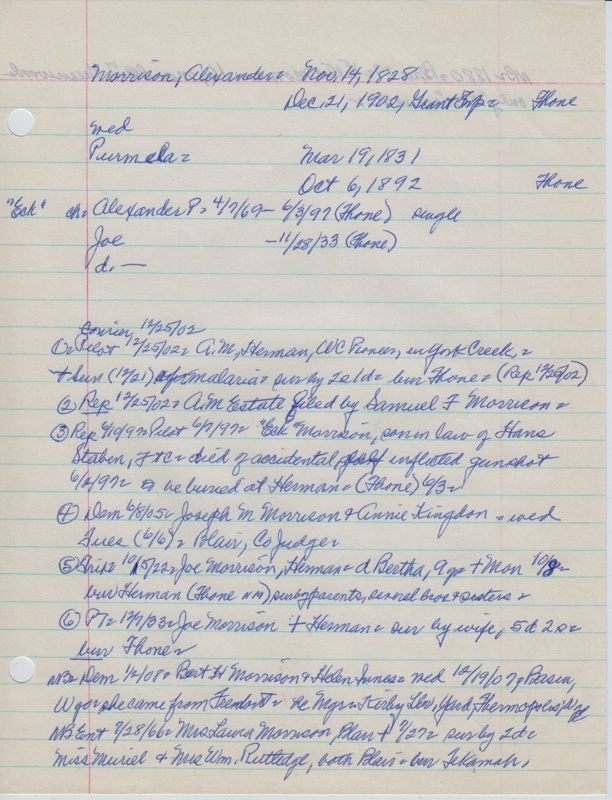 Morrison, Alexander = Nov. 14, 1828
Dec. 21, 1902, Grant Twp = Thone
wed
Purmela = Mar 19, 1831
Oct 6, 1892 Thone
"Eck" ch = Alexander P. = 4/7/69 - 6/3/97 (Thone) single
Joe - 11/28/33 (Thone)
d. —
Courier 12/25/02
① = Pilot 12/25/02 = A.M., Herman, WC Pioneer, in York Creek, =
+ Sun (12/21) malaria = sur by 2s 1d = bur Thone = (Rep 12/25/02)
② Rep 12/25/02 = A.M Estate filed by Samuel F Morrison =
③ Rep Pilot 6/9/97 = "Eck" Morrison, son in law of Hans
Staben, = died of accidental, self inflicted gunshot
6/2/97 = to be buried at Herman = (Thone) 6/3 =
④ Dem 6/8/05 = Joseph M Morrison & Annie Kingdon = wed
Tues (6/6) = Blair, Co Judge =
⑤ Trib = 10/5/22 = Joe Morrison, Herman = d Bertha, 9 yo = + Mon 10/8 =
bur Herman (Thone NM) sur by parents, several bros & sisters =
⑥ PT = 12/7/33 = Joe Morrison + Herman = sur by wife, 5d 2s =
bur Thone =
NB = Dem 1/2/08 = Bert H Morrison & Helen Innes = wed 12/19/07, Basin,
Wyo = she came from Fremont = he Mgr = Kirby Lbr, Yard, Thermopolis, Wy
NB Ent 7/28/66 = Mrs Laura Morrison, Blair + 7/27 = sur by 2d =
Miss Muriel & Mrs Wm. Rutledge, both Blair = bur Tekamah.